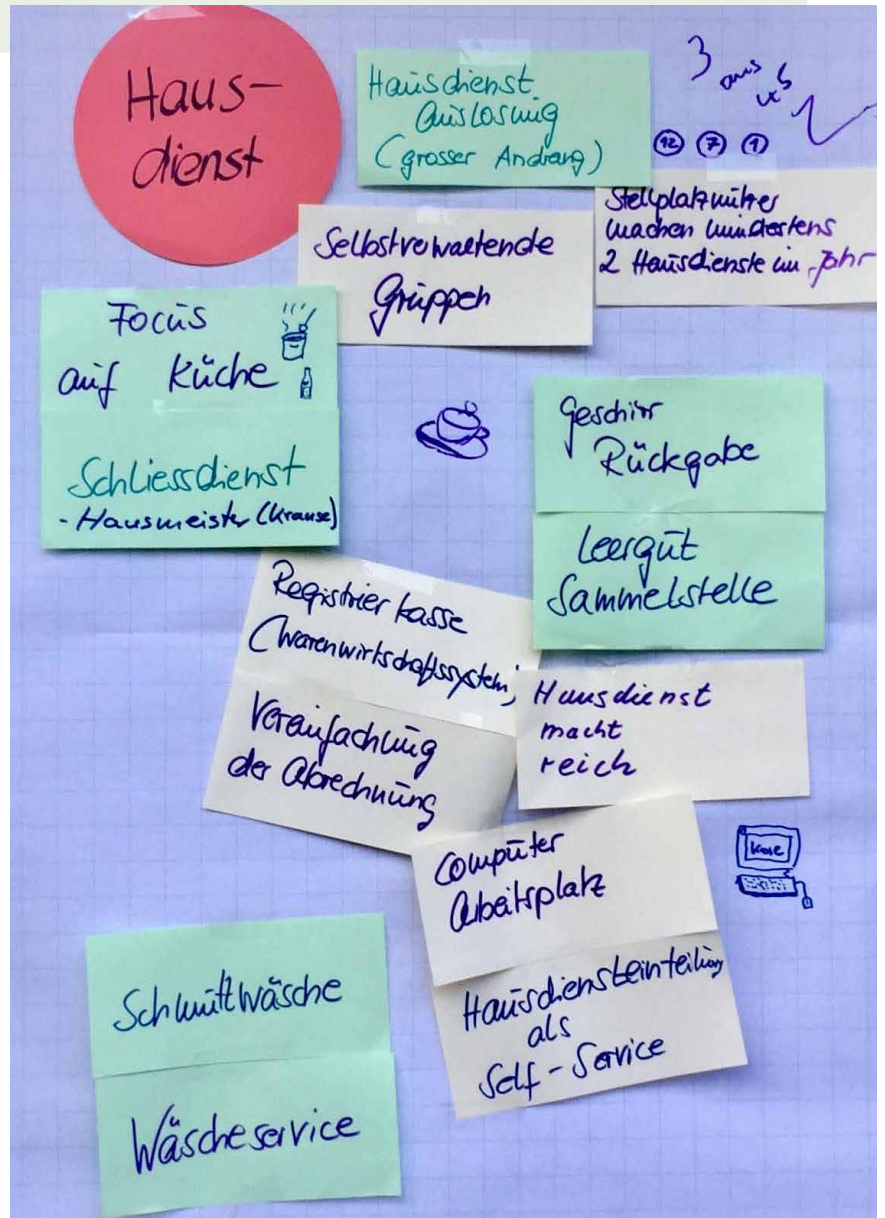 Haus-
dienst
Hausdienst
Auslosung
(grosser Andrang)
3 aus
12 7 1
Stellplatznutzer
machen mindestens
2 Hausdienste im Jahr
Selbstverwaltende
Gruppen
Focus
auf Küche
Schliessdienst
- Hausmeister (Krause)
Geschirr
Rückgabe
Leergut
Sammelstelle
Registrierkasse
(Warenwirtschaftssystem)
Vereinfachung
der Abrechnung
Hausdienst
macht
reich
Computer
Arbeitsplatz
Hausdiensteinteilung
als
Self-Service
Schmuttwäsche
Wäscheservice